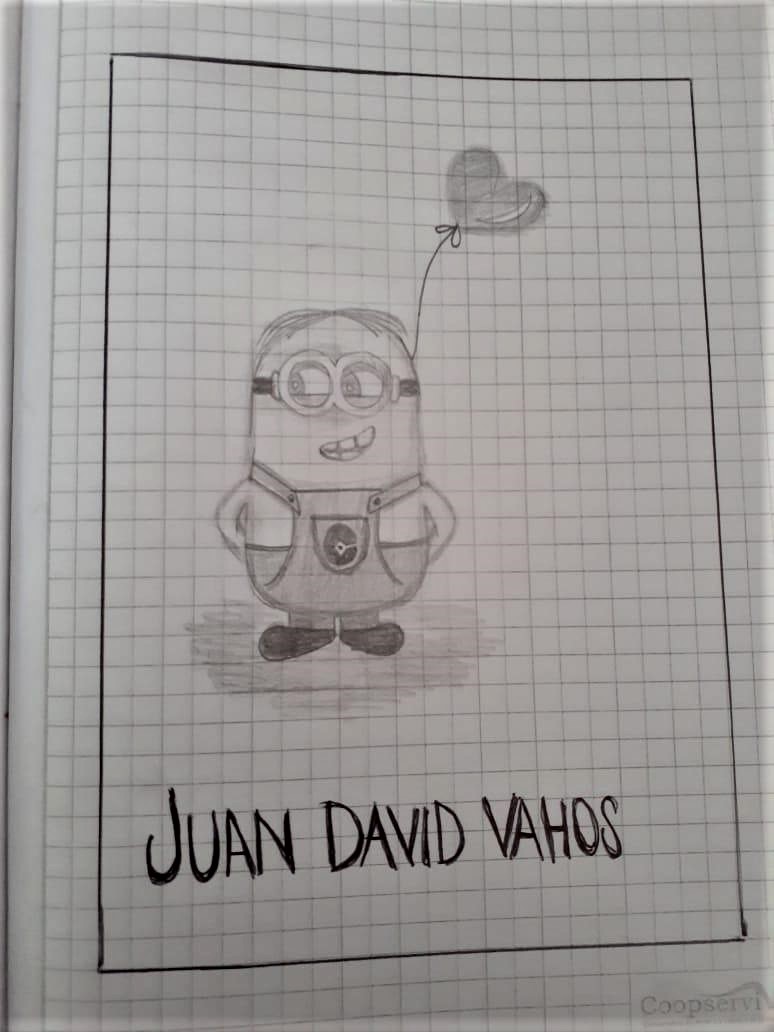 JUAN DAVID VAHOS
Coopservi